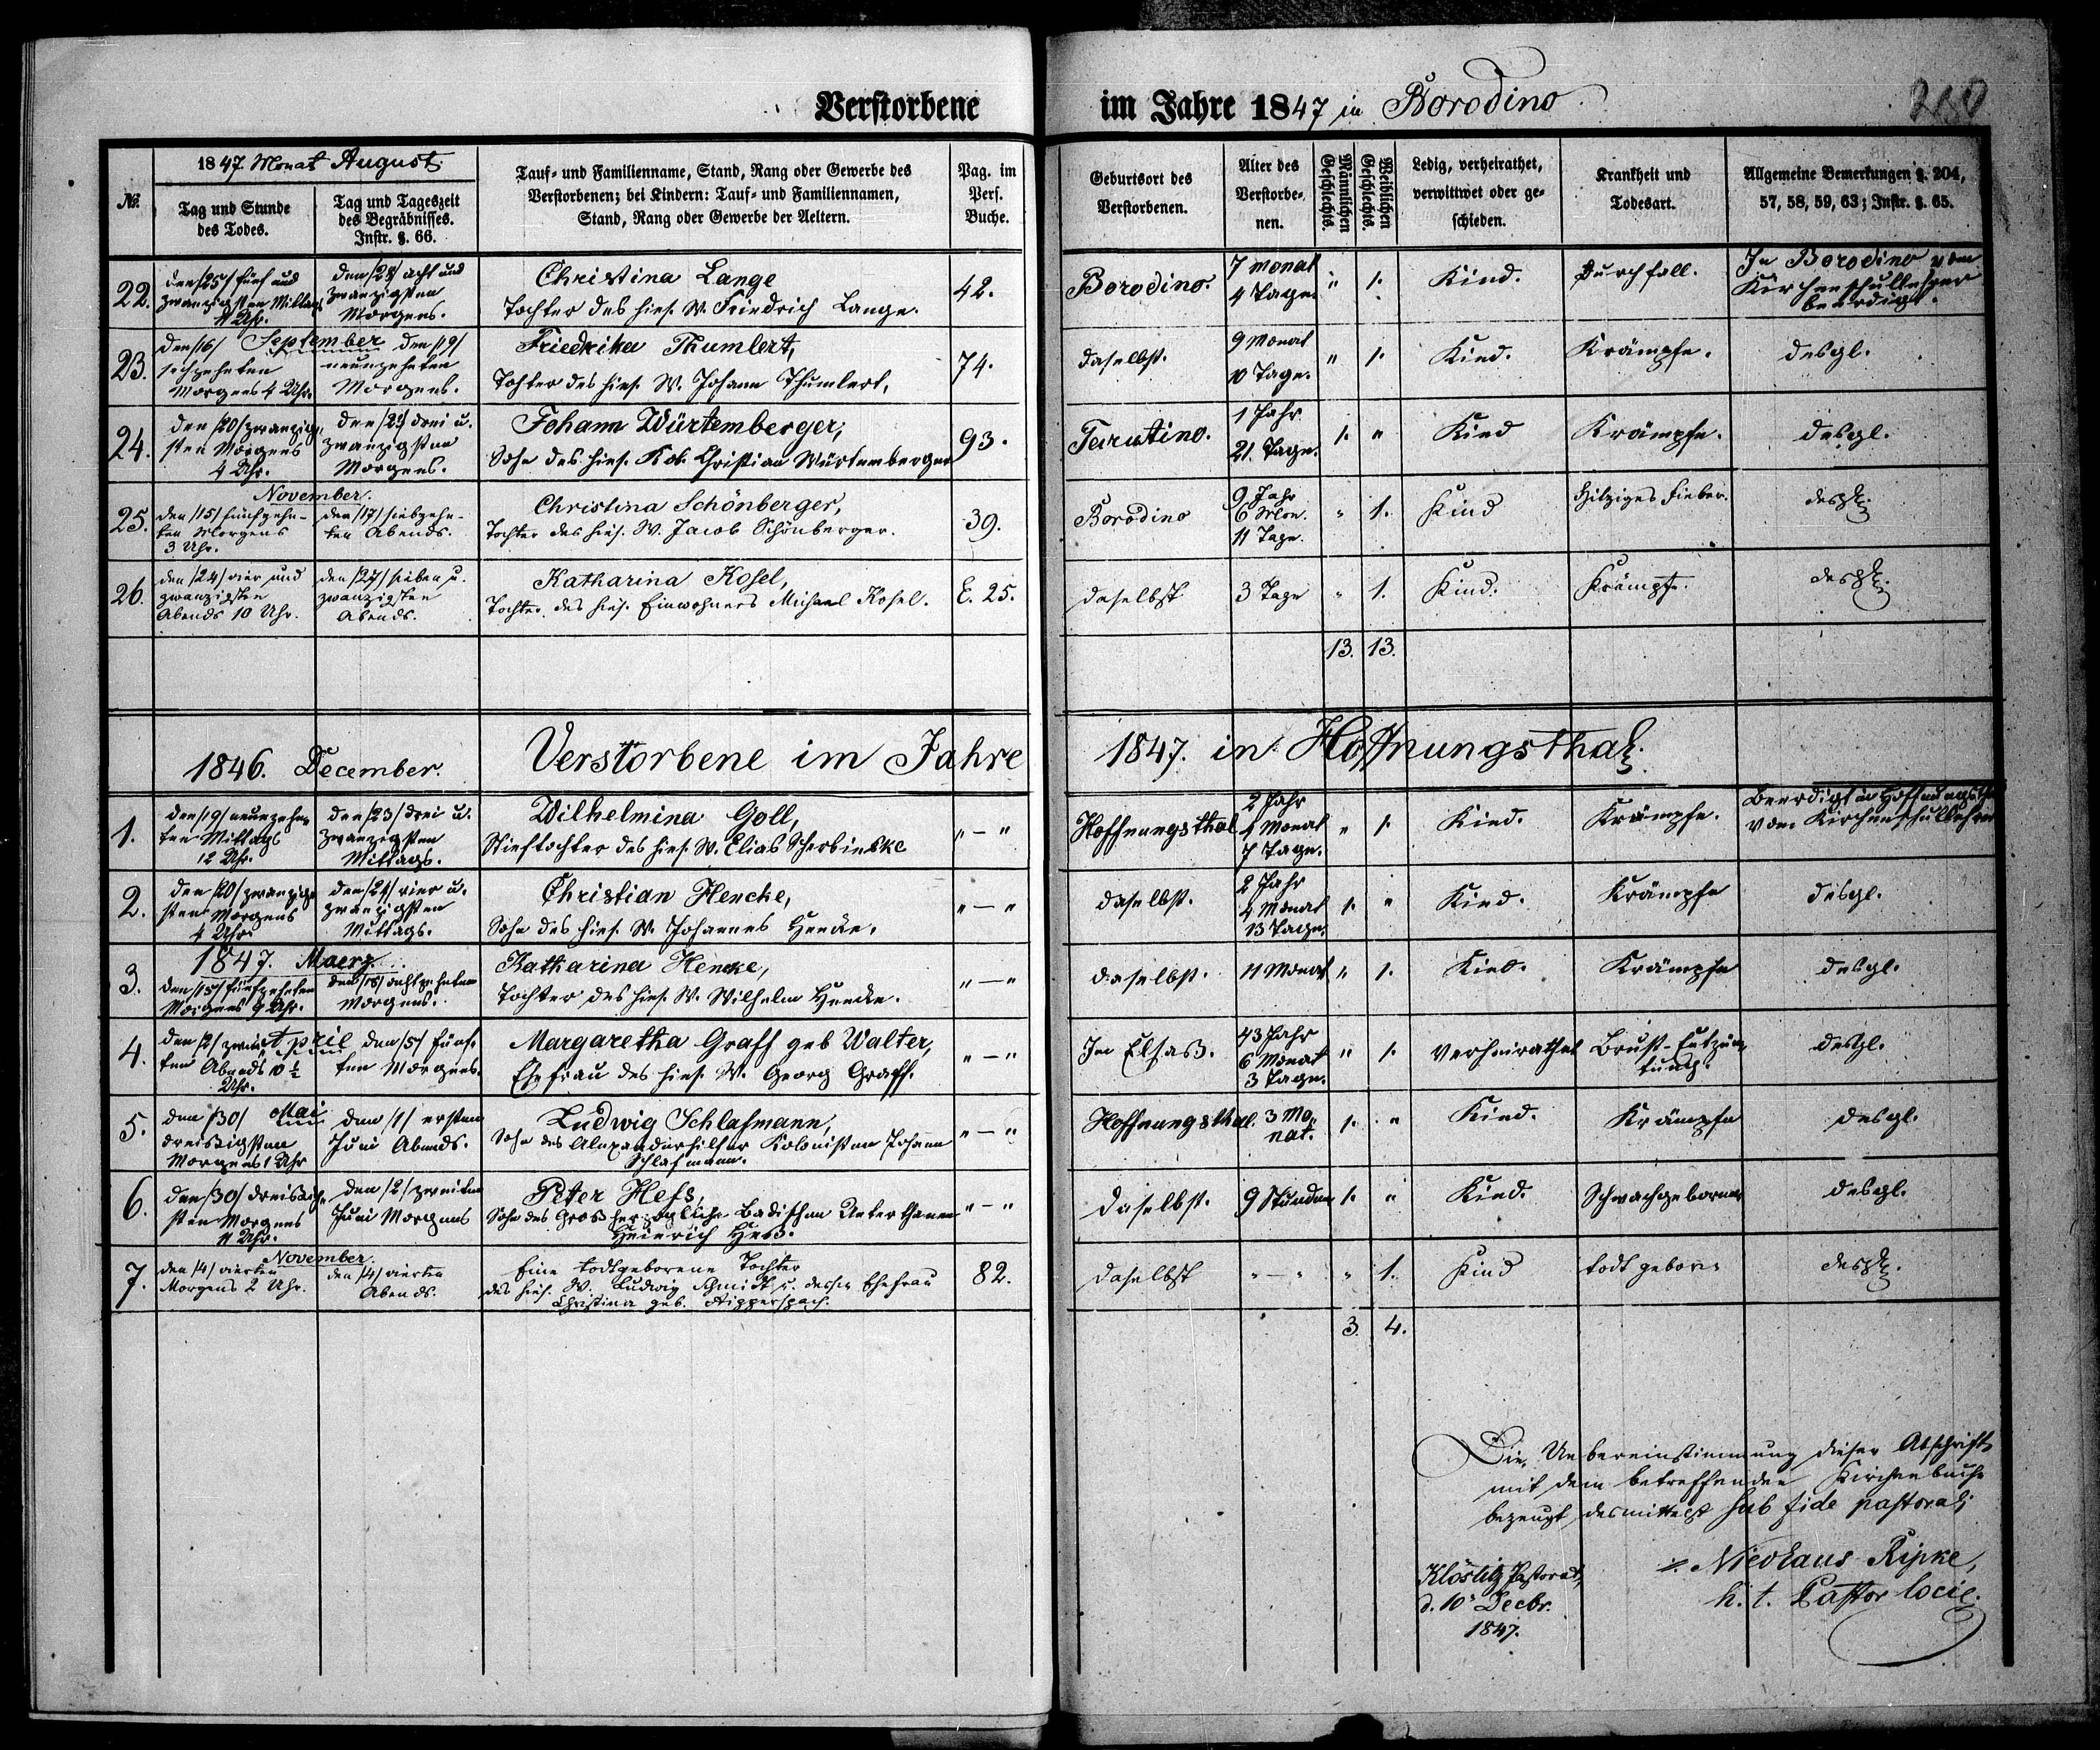 Verstorbene im Jahre 1847 in Borodino
1847 Monat August.
No.
Tag und Stunde
des Todes.
Tag und Tageszeit
des Begräbnisses.
Instr. §. 66.
Tauf- und Familienname, Stand, Rang oder Gewerbe des
Verstorbenen; bei Kindern: Tauf- und Familiennamen,
Stand, Rang oder Gewerbe der Aeltern.
Pag. im
Pers.
Buche.
Geburtsort des
Verstorbenen.
Alter des
Verstorbe-
nen.
Männlichen
Geschlechts.
Weiblichen
Geschlechts.
Ledig, verheirathet,
verwittwet oder ge-
schieden.
Krankheit und
Todesart.
Allgemeine Bemerkungen §. 204,
57, 58, 59, 63; Instr. §. 65.
22.
den /25/ fünf und
zwanzigsten Mittags
11 Uhr.
den /28/ acht und
zwanzigsten
Morgens.
Christina Lange
Tochter des hies. W. Friedrich Lange.
42.
Borodino.
7 Monat
4 Tage.
" 1.
Kind.
Durchfall.
In Borodino vom
Kirchenschullehrer
beerdigt.
September
23.
den /16/
sechzehnten
Morgens 4 Uhr.
den /19/
neunzehnten
Morgens.
Friedrika Thumlert,
Tochter des hies. W. Johann Thumlert,
74.
daselbst.
9 Monat
10 Tage.
" 1.
Kind.
Krämpfe.
desgl.
24.
den /20/ zwanzig-
sten Morgens
4 Uhr.
den /23/ drei u.
zwanzigsten
Morgens.
Johann Würtemberger,
Sohn des hies. Kol. Christian Würtemberger
93.
Tarutino.
1 Jahr
21. Tage.
1. "
Kind
Krämpfe.
desgl.
November.
25.
den /15/ fünfzehn-
ten Morgens
3 Uhr.
den /17/ siebzehn-
ten Abends.
Christina Schönberger,
Tochter des hies. W. Jacob Schönberger.
39.
Borodino
9 Jahr
6 Mon.
11 Tage.
" 1.
Kind
Hitziges Fieber.
desgl.
26.
den /24/ vier und
zwanzigsten
Abends 10 Uhr.
den /27/ sieben u.
zwanzigsten
Abends.
Katharina Kosel,
Tochter des hies. Einwohners Michael Kosel.
E. 25.
daselbst
3 Tage
" 1.
Kind.
Krämpfe.
desgl.
13. 13.
1846. December.
Verstorbene im Jahre 1847. in Hoffnungsthal.
1.
den /19/ neunzehn
ten Mittags
12 Uhr.
den /23/ drei u.
zwanzigsten
Mittags.
Wilhelmina Goll,
Stieftochter des hies. W. Elias Scherbinske
" — "
Hoffnungsthal
2 Jahr
1 Monat
7 Tage.
" 1.
Kind.
Krämpfe.
Beerdigt in Hoffnungsthal
vom Kirchenschullehrer
2.
den /20/ zwanzig
sten Morgens
4 Uhr.
den /24/ vier u.
zwanzigsten
Mittags.
Christian Hencke,
Sohn des hies. W. Johannes Hencke.
" — "
daselbst.
2 Jahr
4 Monat
13 Tage.
1. "
Kind.
Krämpfe
desgl.
1847. Maerz.
3.
den /15/ fünfzehnten
Morgens 9 Uhr.
den /18/ achtzehnten
Morgens.
Katharina Hencke,
Tochter des hies. W. Wilhelm Hencke.
" — "
daselbst.
11 Monat
" 1.
Kind.
Krämpfe
desgl.
April
4.
den /2/ zwei
ten Abends 10 ½
Uhr.
den /5/ fünf-
ten Morgens.
Margaretha Graff geb Walter,
Ehefrau des hies. W. Georg Graff.
" — "
Im Elsaß.
43 Jahr
6 Monat
3 Tage.
" 1.
verheirathet
Brust-Entzün-
dung.
desgl.
Mai
5.
den /30/
dreißigsten
Morgens 1 Uhr
den /1/ ersten
Juni Abends.
Ludwig Schlafmann,
Sohn des Alexanderhilfer Kolonisten Johann
Schlafmann.
" — "
Hoffnungsthal.
3 Mo-
nat.
1. "
Kind.
Krämpfe
desgl.
6.
den /30/ dreißig-
sten Morgens
11 Uhr.
den /2/ zweiten
Juni Morgens
Peter Hefs,
Sohn des Großherzoglich-Badischen Unterthanen
Heinrich Heß.
" — "
daselbst.
9 Stunden
1. "
Kind.
Schwachgeboren.
desgl.
November
7.
den /4/ vierten
Morgens 2 Uhr.
den /4/ vierten
Abends.
Eine todtgeborene Tochter
des hies. W. Ludwig Schmidt u. dessen Ehefrau
Christina geb. Hipperspach.
82.
daselbst
" — "
" 1.
Kind
todt geboren
desgl.
3. 4.
Die Uebereinstimmung dieser Abschrift
mit dem betreffenden Kirchenbuche
bezeugt desmittelst sub fide pastorali
Klöstitz Pastorat,
d. 10. Decbr.
1847.
Nicolaus Ripke,
h. t. Pastor loci.